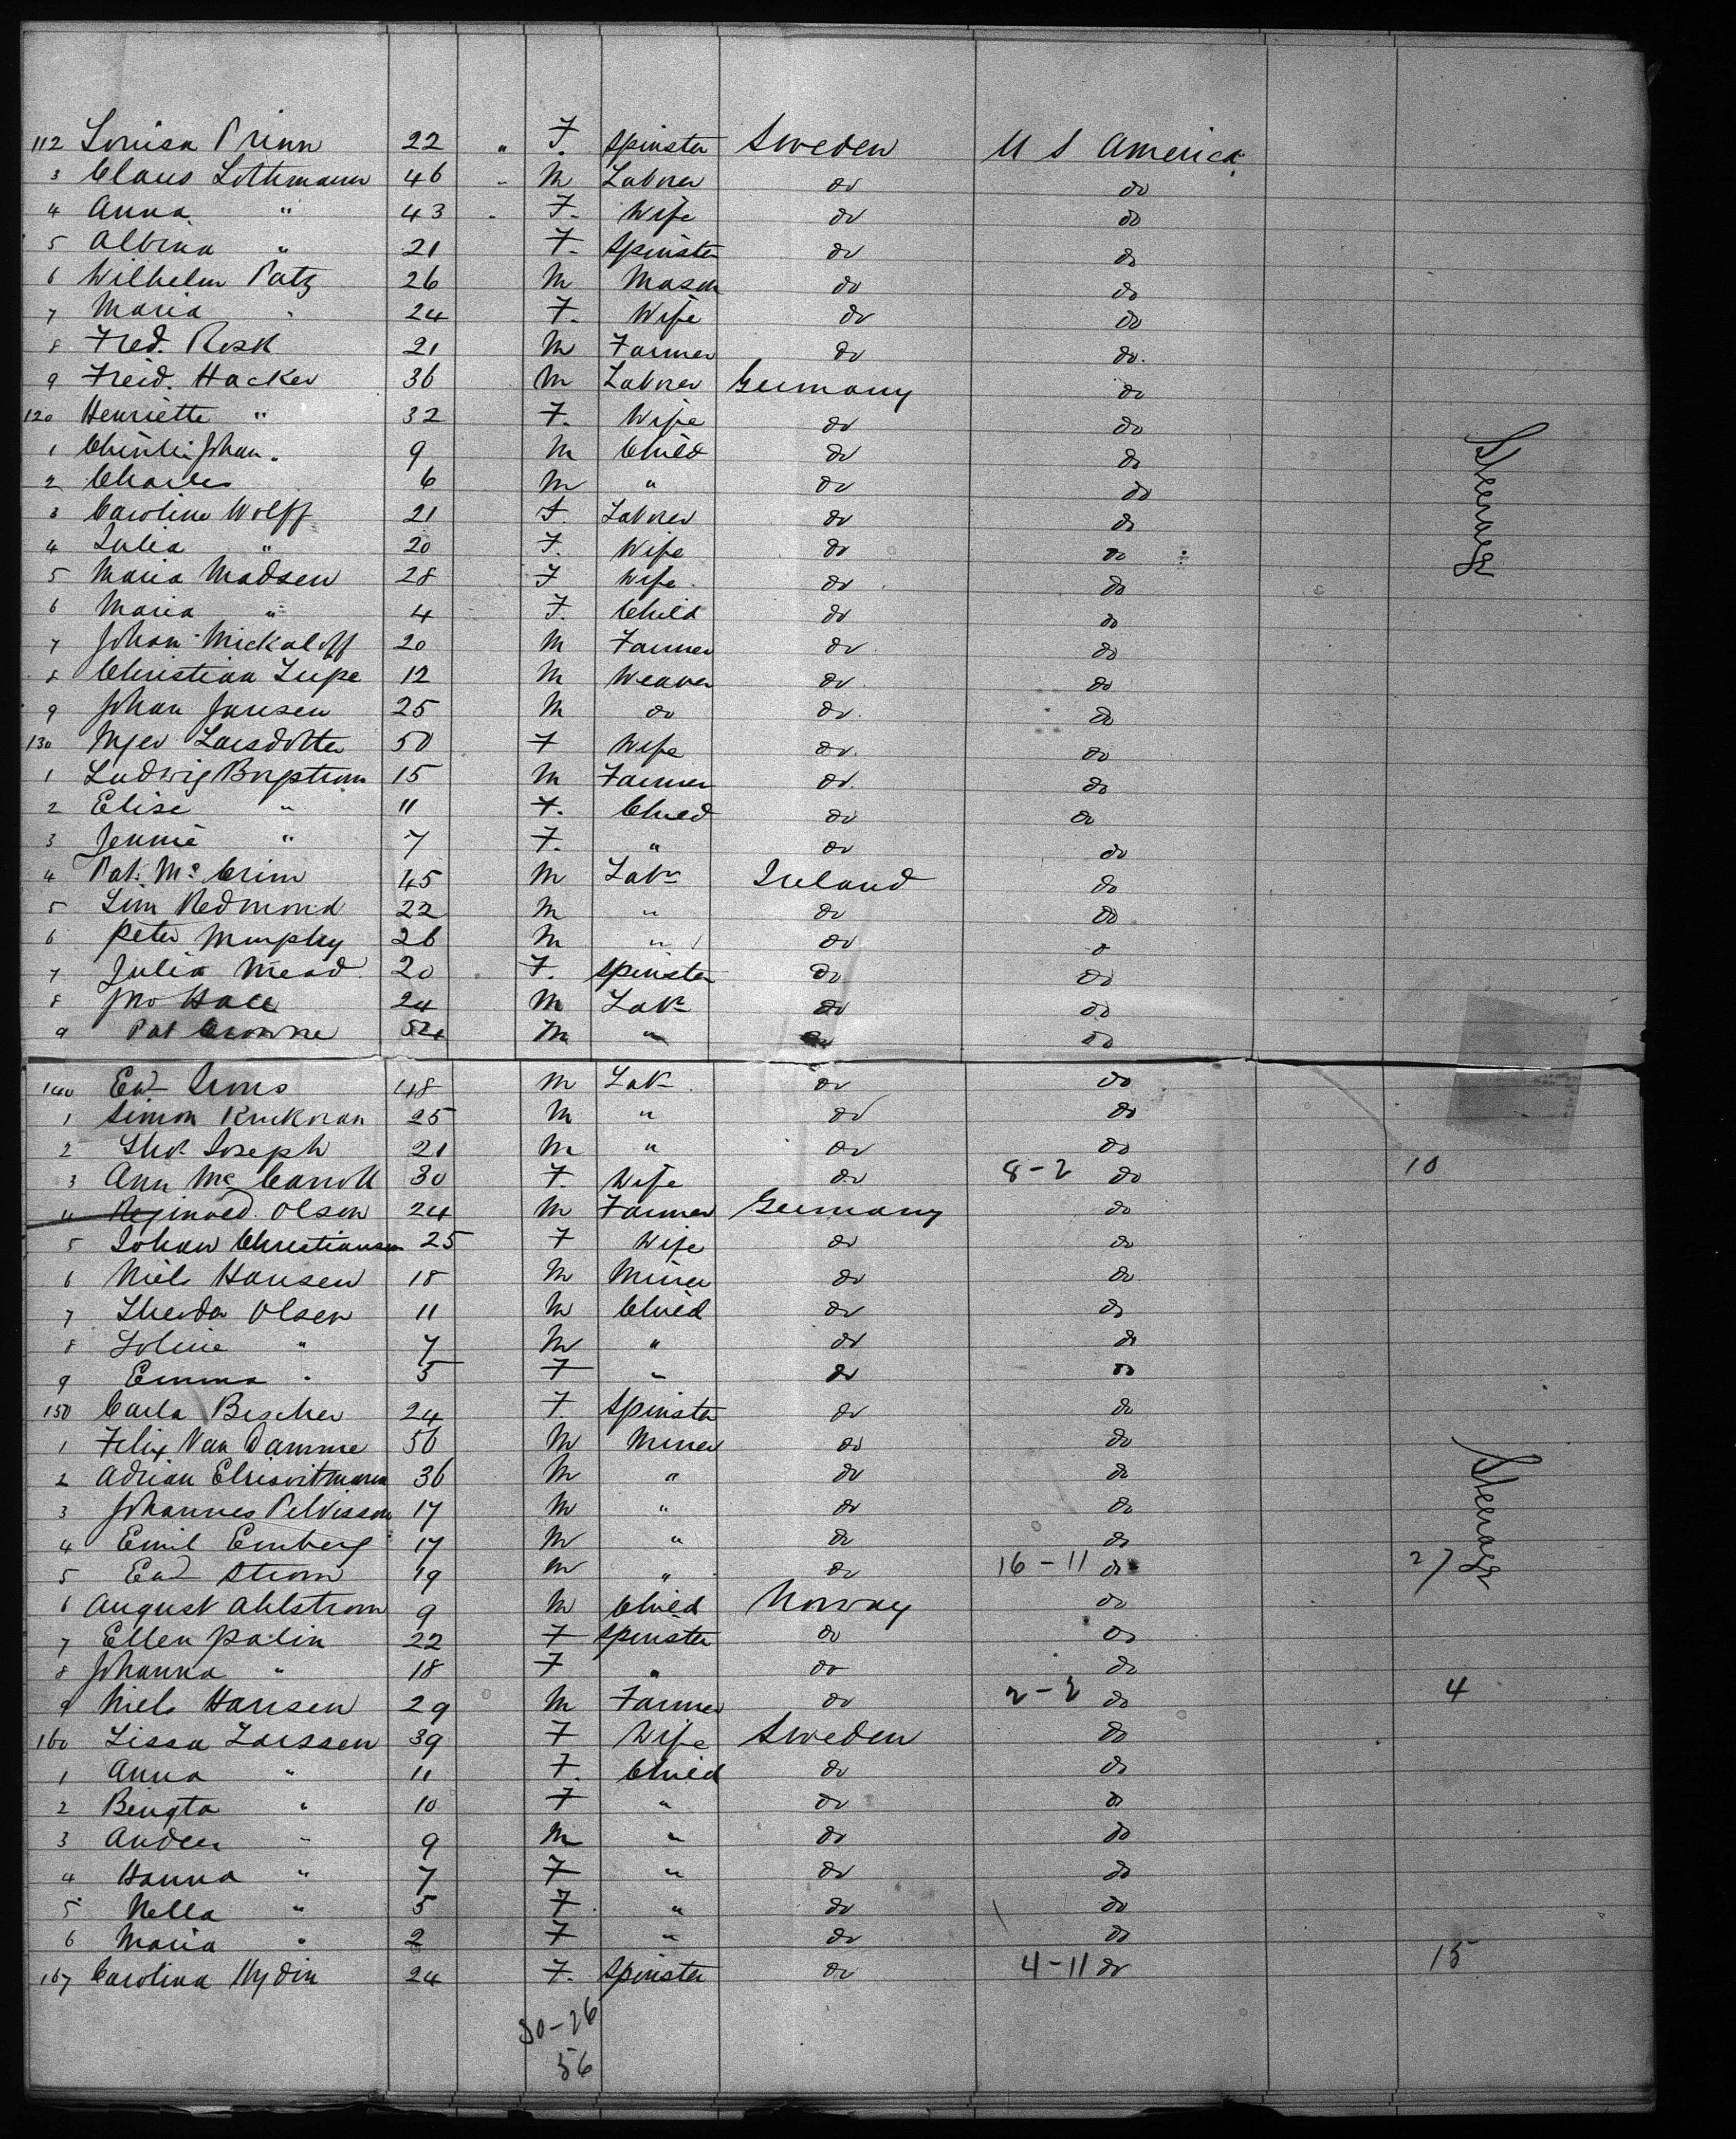 112 Louisa Prinn 22 " F. Spinster Sweden U S America
3 Claus Lothmann 46 " M Labrer do do
4 Anna " 43 " F. Wife do do
5 Albina " 21 F. Spinster do do
6 Wilhelm Patz 26 M Mason do do
7 Maria " 24 F. Wife do do
8 Fred. Rosk 21 M Farmer do do.
9 Freid. Hacker 36 M Labrer Germany do
120 Henriette " 32 F. Wife do do
1 Johan " 9 M Child do do
2 Charles 6 M " do do
3 Caroline Wolff 21 F. Labrer do do
4 Julia " 20 F. Wife do do
5 Maria Madsen 28 F Wife do do
6 Maria " 4 F. Child do do
7 Johan Mickaloff 20 M Farmer do do
8 Christian Lupe 12 M Weaver do do
9 Johan Jansen 25 M do do do
130 Larsdotter 50 F Wife do do
1 Ludwig 15 M Farmer do do
2 Elise " 11 F. Child do do
3 Jennie " 7 F. " do do
4 Pat. Mc Crim 45 M Labr Ireland do
5 Jim Redmond 22 M " do do
6 Peter Murphy 26 M " do do
7 Julia Mead 20 F. Spinster do do
8 Jno Hall 24 M Labr do do
9 Pat Crowne 54 M " do do
140 Ed Irons 48 M Labr do do
1 Simon 25 M " do do
2 Thos Joseph 21 M " do do
3 Ann Mc Carroll 30 F. Wife do 8-2 do 10
4 Olson 24 M Farmer Germany do
5 Johan Christiansen 25 F Wife do do
6 Niels Hansen 18 M Miner do do
7 Olsen 11 M Child do do
8 " 7 M " do do
9 Emma " 5 F " do do
150 Carla Bescher 24 F. Spinster do do
1 Felix Van Damme 56 M Miner do do
2 Adrian 36 M " do do
3 Johannes 17 M " do do
4 Emil Emberg 17 M " do do
5 Ed Strom 19 M " do 16-11 do 27
6 August Ahlstrom 9 M Child Norway do
7 Ellen Palin 22 F Spinster do do
8 Johanna " 18 F " do do
9 Niels Hansen 29 M Farmer do 2-2 do 4
160 Lissa Larssen 39 F Wife Sweden do
1 Anna " 11 F. Child do do
2 Bengta " 10 F " do do
3 Anders " 9 M " do do
4 Hanna " 7 F " do do
5 Nella " 5 F " do do
6 Maria " 2 F " do do
167 Carolina Hydin 24 F. Spinster do 4-11 do 15
30-26
56
Steerage
Steerage